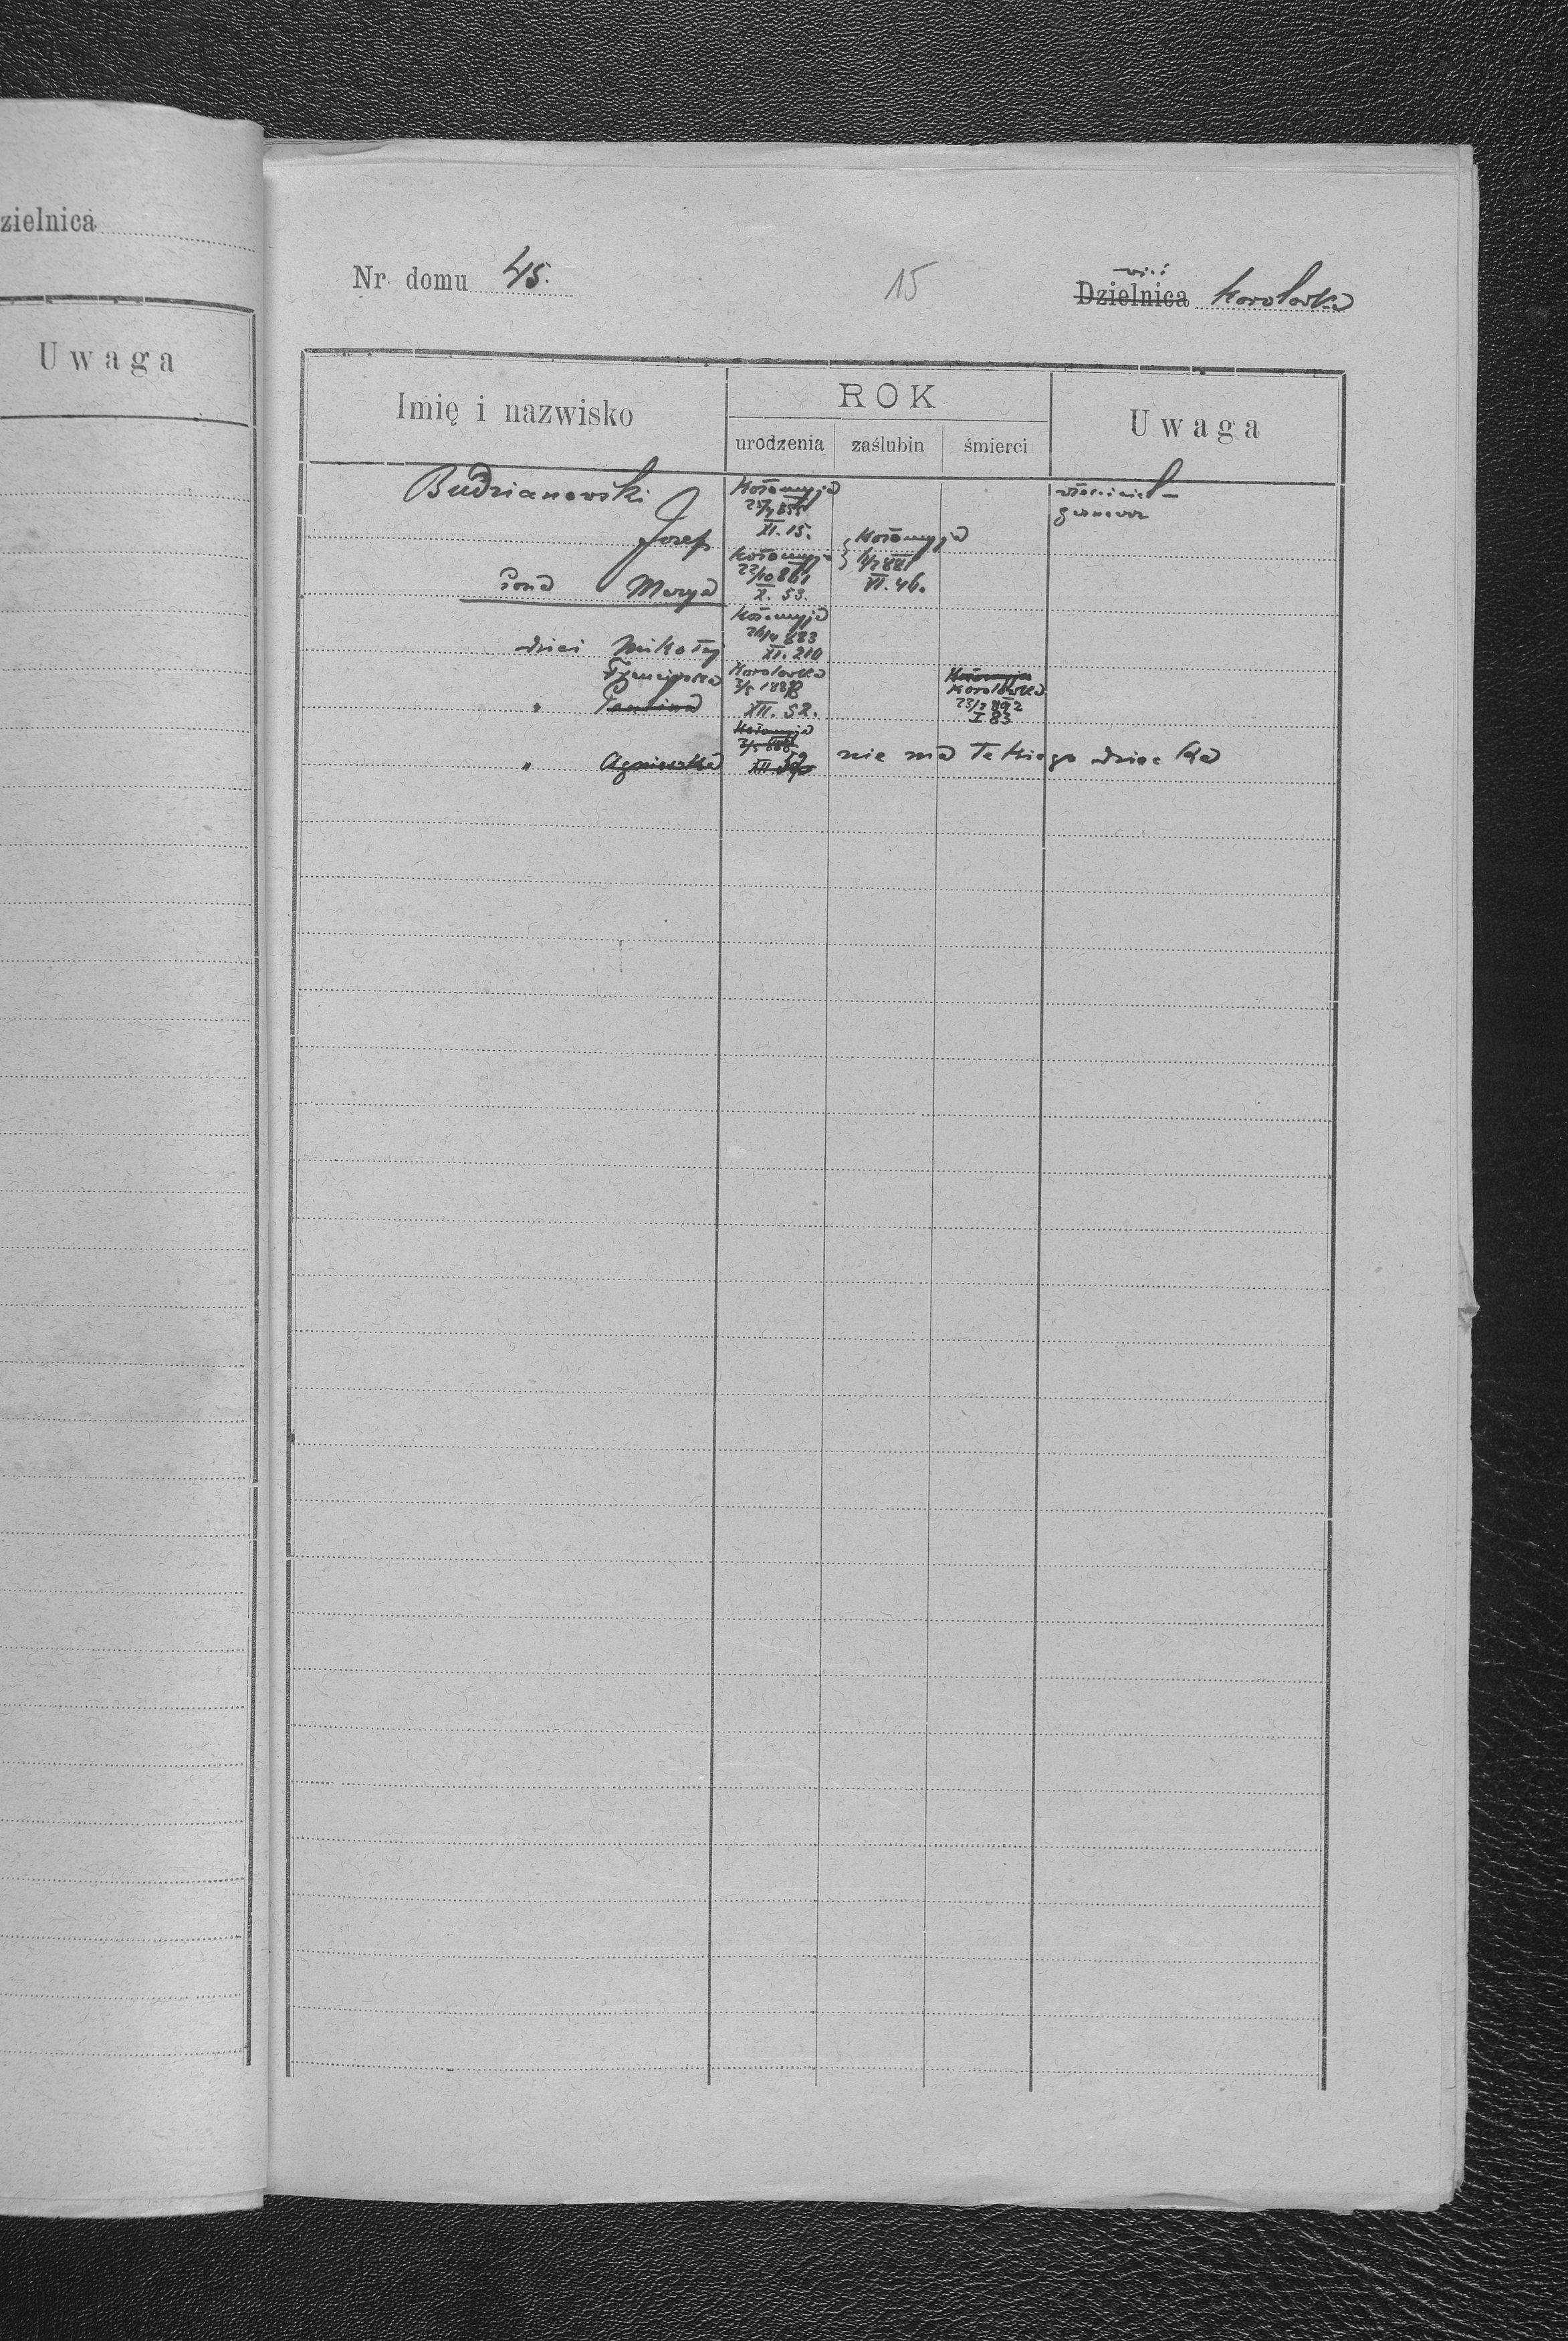 zielnica
Uwaga
Nr domu 45.
15
wieś
Dzielnica Korolówka
Imię i nazwisko
ROK
urodzenia
zaślubin
śmierci
Uwaga
Budzianowski
Józef
Kołomyja
XI. 15.
właściciel
żona Marya
Kołomyja
22/10 861
X. 53.
Kołomyja
VI. 46.
dzieci Mikołaj
Kołomyja
26/4 883
XI. 210
Franciszka
" Paulina
Korolówka
XII. 52.
Kołomyja
Korolówka
25/2 892
I 83
" Agnieszka
Kołomyja
XII.
nie ma takiego dziecka